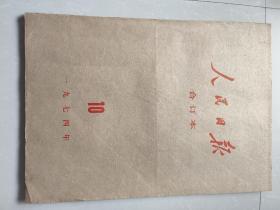 人民日报
合订本
10
一九七四年